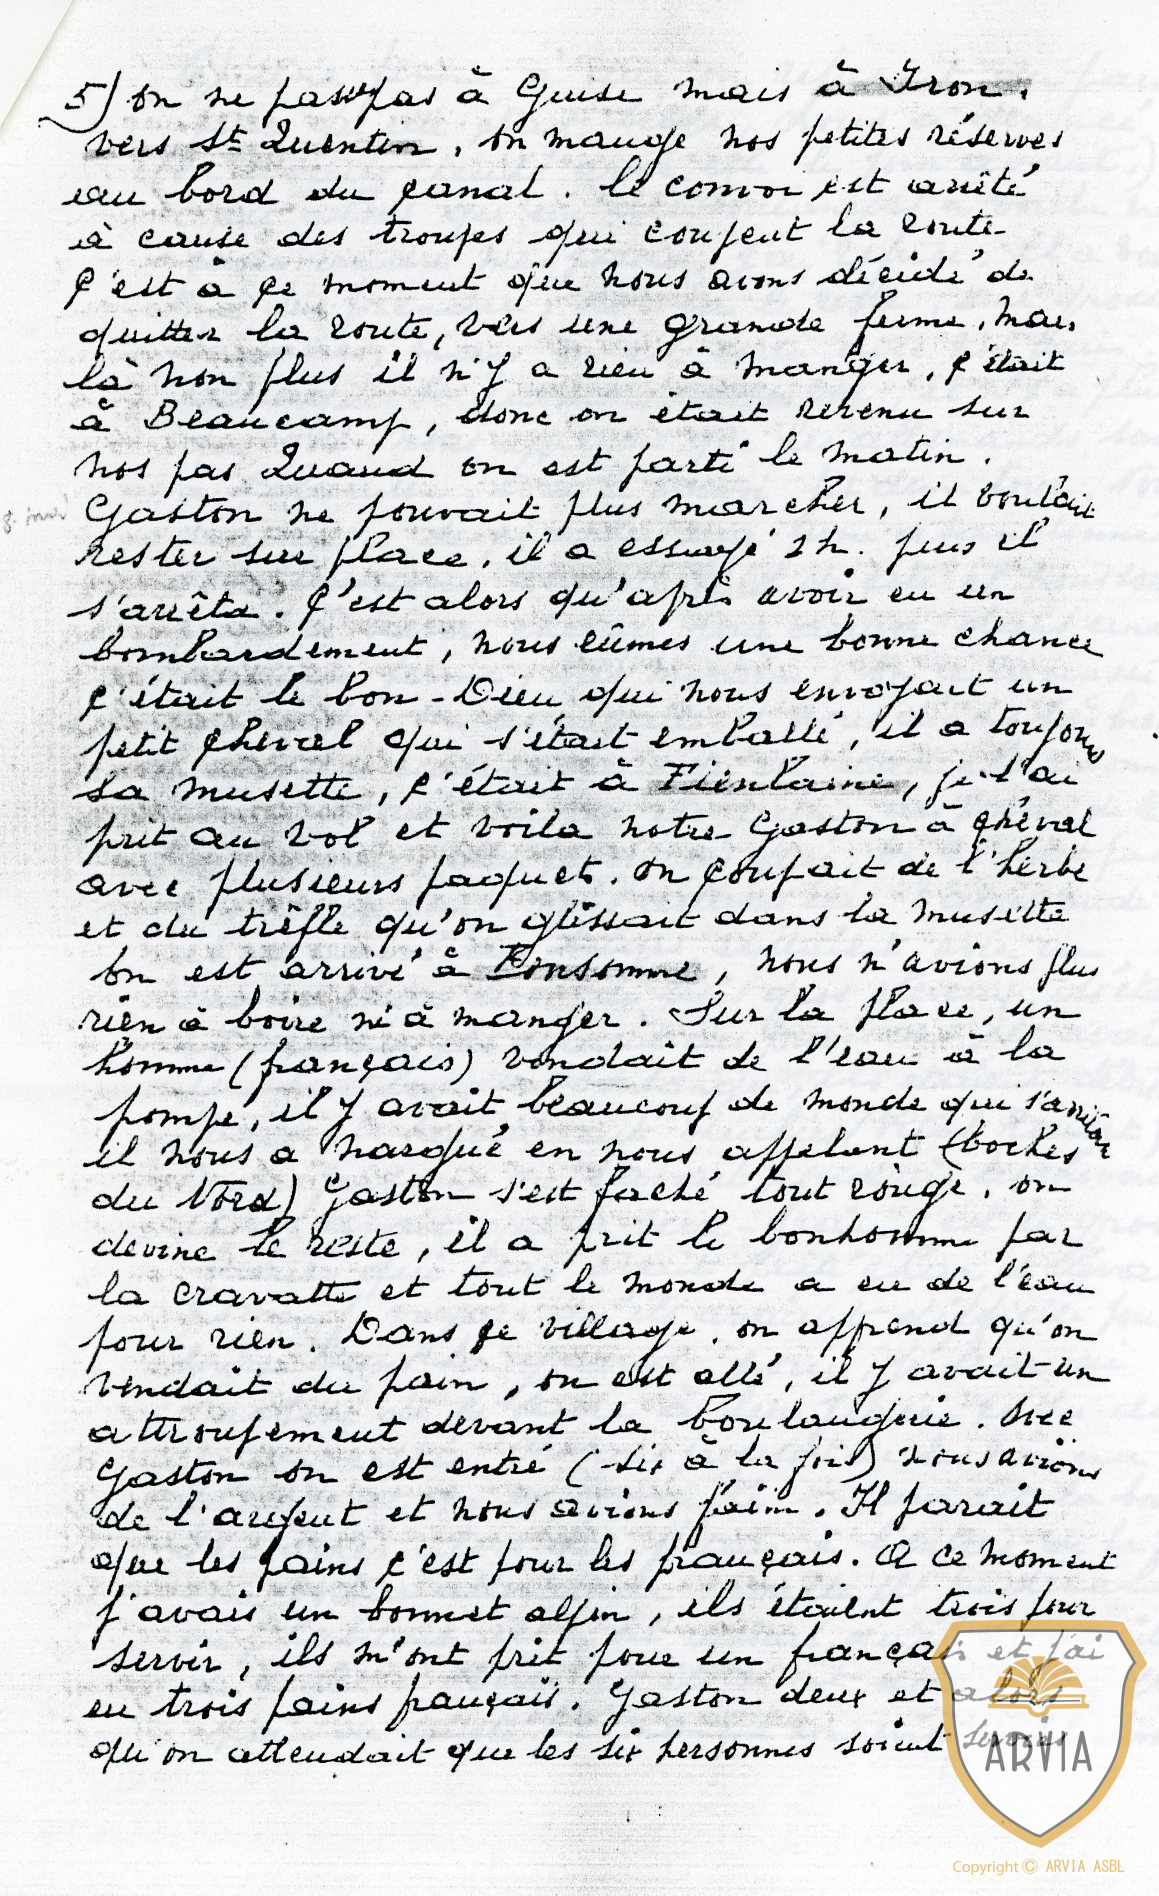 5) on ne passe pas à Guise mais à Iron.
vers St Quentin, on mange nos petites réserves
au bord du canal. le convoi est arrêté
à cause des troupes qui coupent la route
c'est à ce moment que nous avons décidé de
quitter la route, vers une grande ferme, mais
là non plus il n'y a rien à manger, c'était
à Beaucamp, donc on était revenu sur
nos pas Quand on est parti le matin.
Gaston ne pouvait plus marcher, il voulait
rester sur place, il a essayé 2 h. puis il
s'arrêta. C'est alors qu'après avoir eu un
bombardement, nous eûmes une bonne chance
c'était le bon-Dieu qui nous envoyait un
petit cheval qui s'était emballé, il a toujours
sa musette, c'était à Fienlaine, je l'ai
prit au vol et voila notre Gaston à cheval
avec plusieurs paquets. on coupait de l'herbe
et du trêfle qu'on glissait dans la musette
on est arrivé à Fonsomme, nous n'avions plus
rien à boire ni à manger. Sur la place, un
homme (français) vendait de l'eau à la
pompe, il y avait beaucoup de monde qui s'arrêtait
il nous a nargué en nous appelant (boches
du Nord) Gaston s'est faché tout rouge, on
devine le reste, il a prit le bonhomme par
la cravatte et tout le monde a eu de l'eau
pour rien. Dans ce village, on apprend qu'on
vendait du pain, on est allé, il y avait un
attroupement devant la boulangerie. Avec
Gaston on est entré (six à la fois) nous avions
de l'argent et nous avions faim. Il parait
que les pains c'est pour les français. A ce moment
j'avais un bonnet alpin, ils étaient trois pour
servir, ils m'ont prit pour un français et j'ai
eu trois pains français. Gaston deux et alors
qu'on attendait que les six personnes soient servies
ARVIA
Copyright © ARVIA ASBL